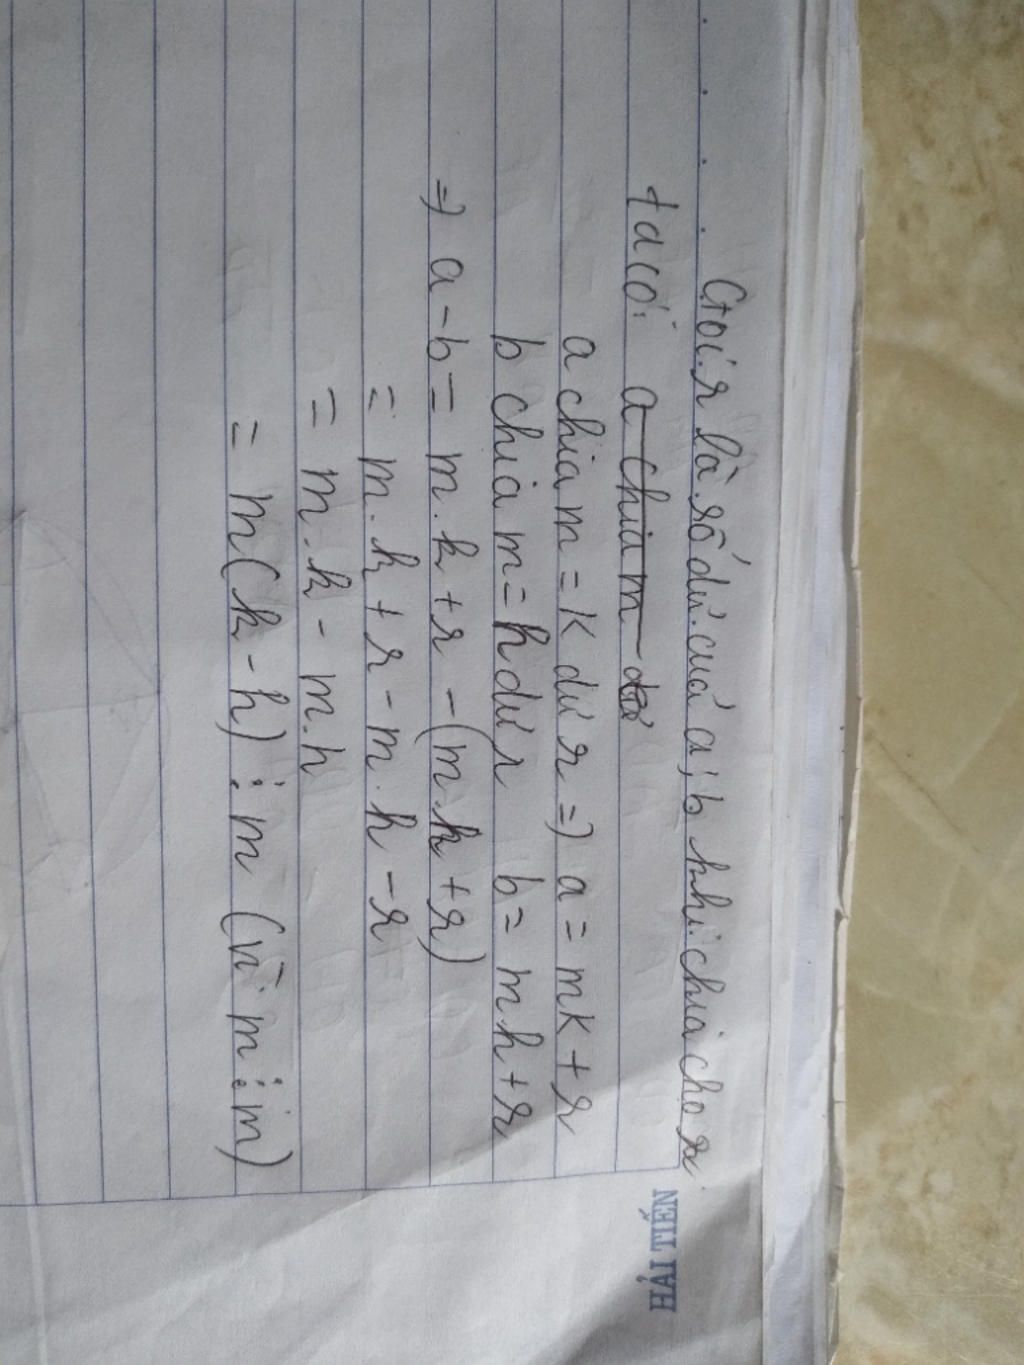 Gọi r là số dư của a; b khi chia cho r
ta có: a chia m dư
a chia m = k dư r => a = mk + r
b chia m = h dư r b = mh + r
=> a - b = m.k + r - (m.h + r)
= m.k + r - m.h - r
= m.k - m.h
= m(k - h) ⋮ m (vì m ⋮ m)
HẢI TIẾN